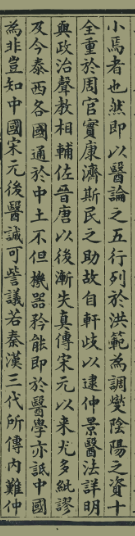 小焉者也然即以醫論之五行列於洪範為調燮陰陽之資十
全重於周官實康濟斯民之助故自軒歧以逮仲景醫法詳明
與政治聲教相輔佐晉唐以後漸失真傳宋元以來尤多紕謬
及今泰西各國通於中土不但機器矜能即於醫學亦詆中國
為非豈知中國宋元後醫誠可訾議若秦漢三代所傳內難仲